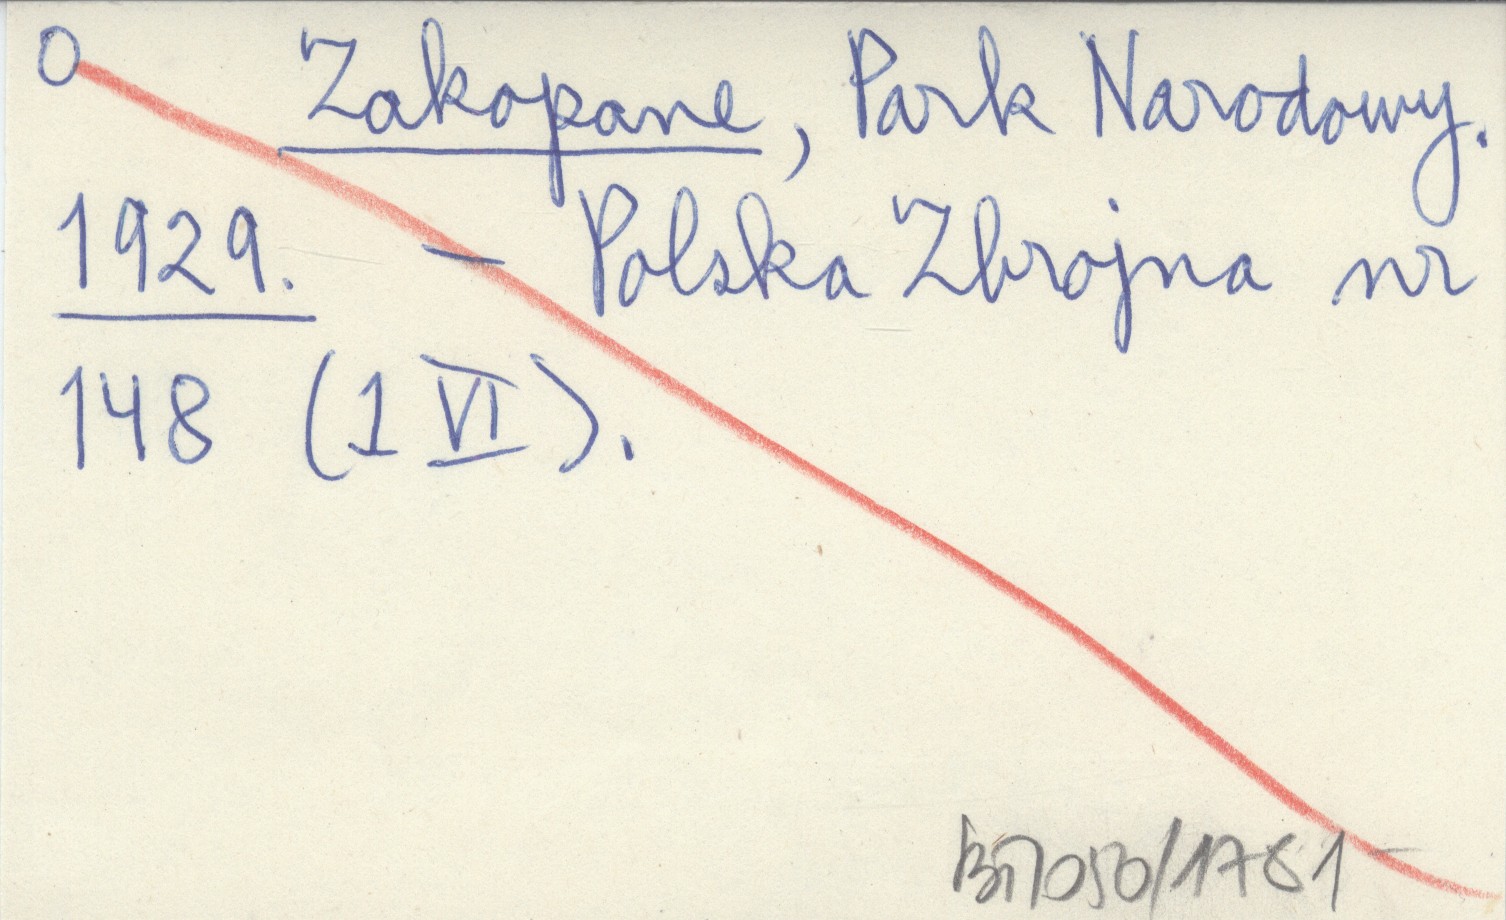 O Zakopane, Park Narodowy.
1929. — Polska Zbrojna nr
148 (1 VI).